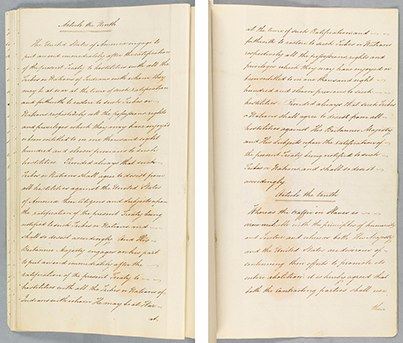 Article the Ninth
The United States of America engage to
put an end immediately after the ratification
of the present Treaty to hostilities with all the
Tribes or Nations of Indians with whom they
may be at war at the time of such ratification
and forthwith to restore to such Tribes or
Nations respectively all the possessions rights
and privileges which they may have enjoyed
or been entitled to in one thousand eight
hundred and eleven previous to such
hostilities. Provided always that such
Tribes or Nations shall agree to desist from
all hostilities against the United States
of America their Citizens and Subjects upon
the ratification of the present Treaty being
notified to such Tribes or Nations and
shall so desist accordingly. And His
Britannic Majesty engages on his part
to put an end immediately after the
ratification of the present Treaty to
hostilities with all the Tribes or Nations of
Indians with whom He may be at War
at.
at the time of such Ratification and
forthwith to restore to such Tribes or Nations
respectively all the possessions, rights and
privileges which they may have enjoyed or
been entitled to in one thousand eight
hundred and eleven previous to such
hostilities. Provided always that such Tribes
or Nations shall agree to desist from all
hostilities against His Britannic Majesty
and His Subjects upon the ratification of
the present Treaty being notified to such
Tribes or Nations and shall so desist
accordingly
Article the tenth
Whereas the traffic in Slaves is
irreconcilable with the principles of humanity
and Justice and whereas both His Majesty
and the United States are desirous of
continuing their efforts to promote its
entire abolition it is hereby agreed that
both the contracting parties shall use
their